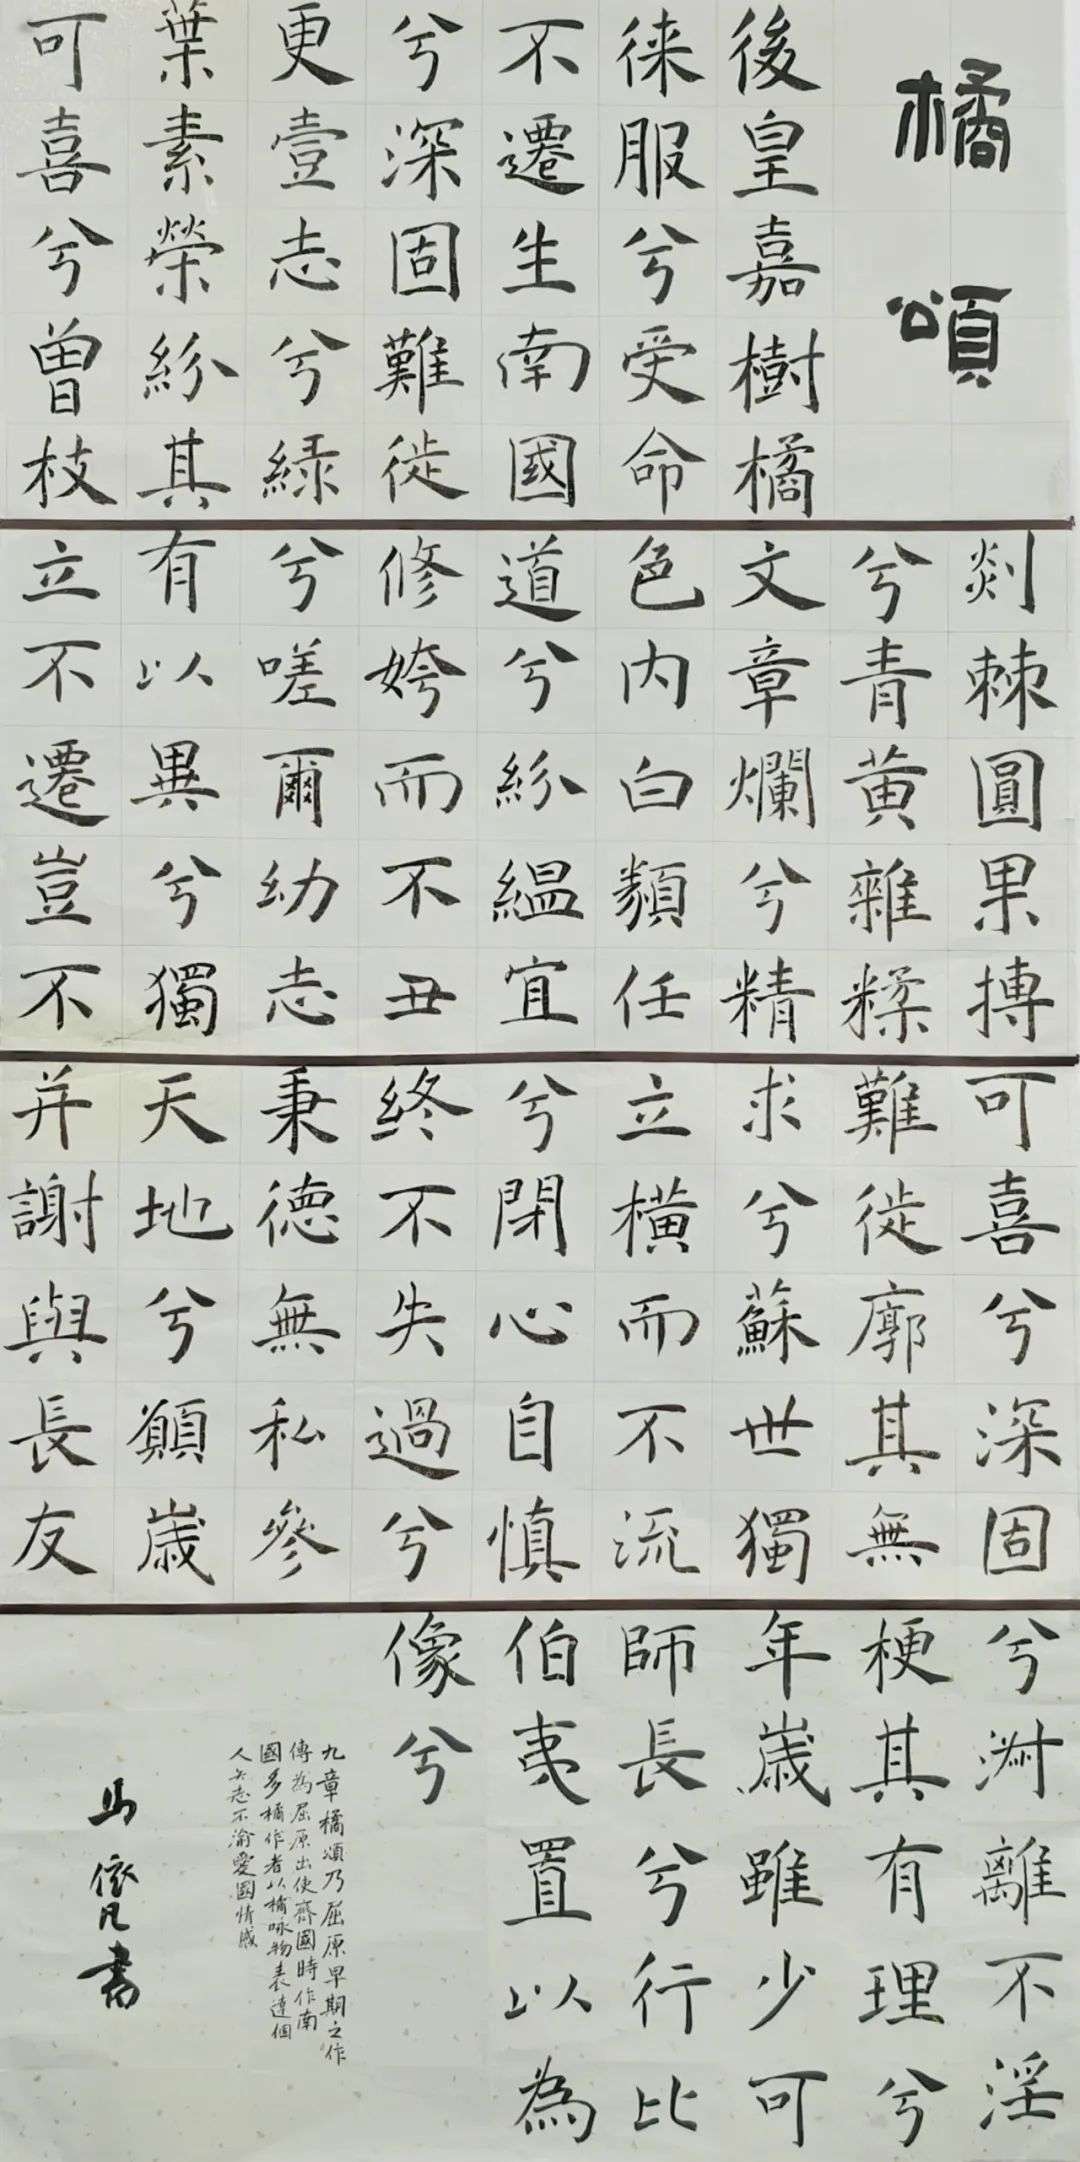 橘頌
後皇嘉樹橘
徠服兮受命
不遷生南國
兮深固難徙
更壹志兮緑
葉素榮紛其
可喜兮曾枝
剡棘圓果摶
兮青黄雜糅
文章爛兮精
色内白類任
道兮紛緼宜
修姱而不丑
兮嗟爾幼志
有以異兮獨
立不遷豈不
可喜兮深固
難徙廓其無
求兮蘇世獨
立横而不流
兮閉心自慎
終不失過兮
秉德無私參
天地兮願歲
并謝與長友
兮淑離不淫
梗其有理兮
年歲雖少可
師長兮行比
伯夷置以為
像兮
九章橘頌乃屈原早期之作
傳為屈原出使齊國時作南
國多橘作者以橘咏物表達個
人矢志不渝愛國情感
馬依凡書